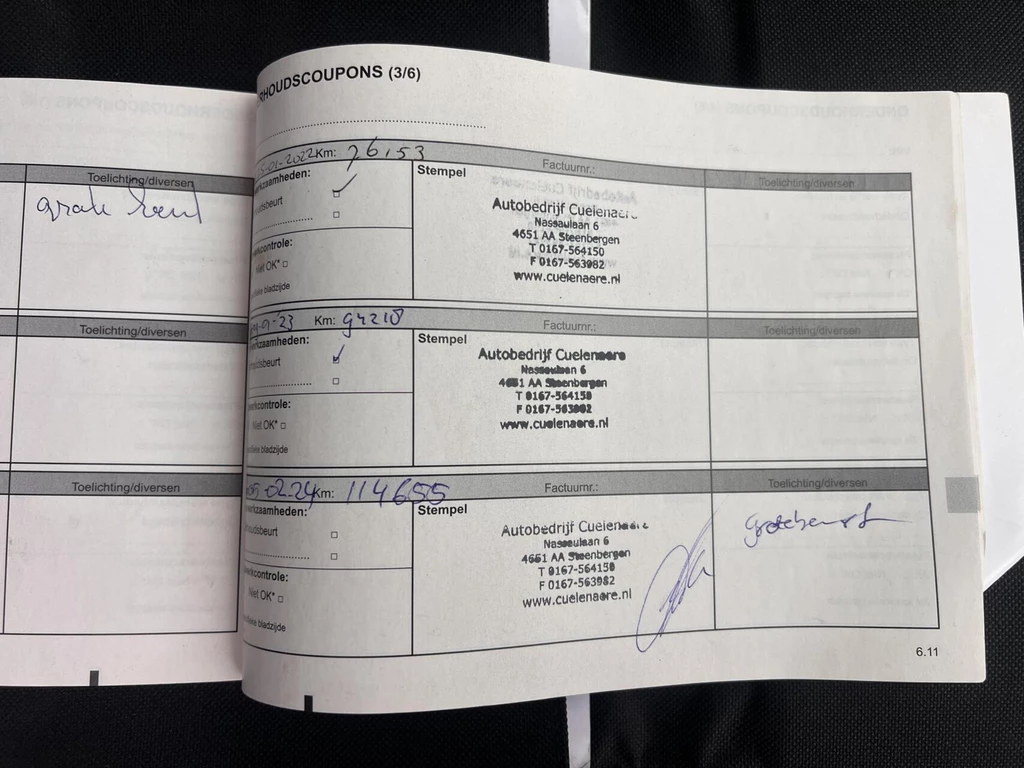 Toelichting/diversen
Toelichting/diversen
Toelichting/diversen
RHOUDSCOUPONS (3/6)
-01-2022 Km: 76.153 Factuurnr.: Toelichting/diversen
rkzaamheden:
dsbeurt
rkcontrole:
Niet OK*
fieke bladzijde
Stempel
Autobedrijf Cuelenaere
Nassaulaan 6
4651 AA Steenbergen
T 0167-564150
F 0167-563982
www.cuelenaere.nl
-23 Km: 94218 Factuurnr.: Toelichting/diversen
rkzaamheden:
houdsbeurt
rkcontrole:
Niet OK*
fieke bladzijde
Stempel
Autobedrijf Cuelenaere
Nassaulaan 6
4651 AA Steenbergen
T 0167-564150
F 0167-563982
www.cuelenaere.nl
-02-24 Km: 114655 Factuurnr.: Toelichting/diversen
rkzaamheden:
oudsbeurt
rkcontrole:
Niet OK*
fieke bladzijde
Stempel
Autobedrijf Cuelenaere
Nassaulaan 6
4651 AA Steenbergen
T 0167-564150
F 0167-563982
www.cuelenaere.nl
grotebeurt
6.11